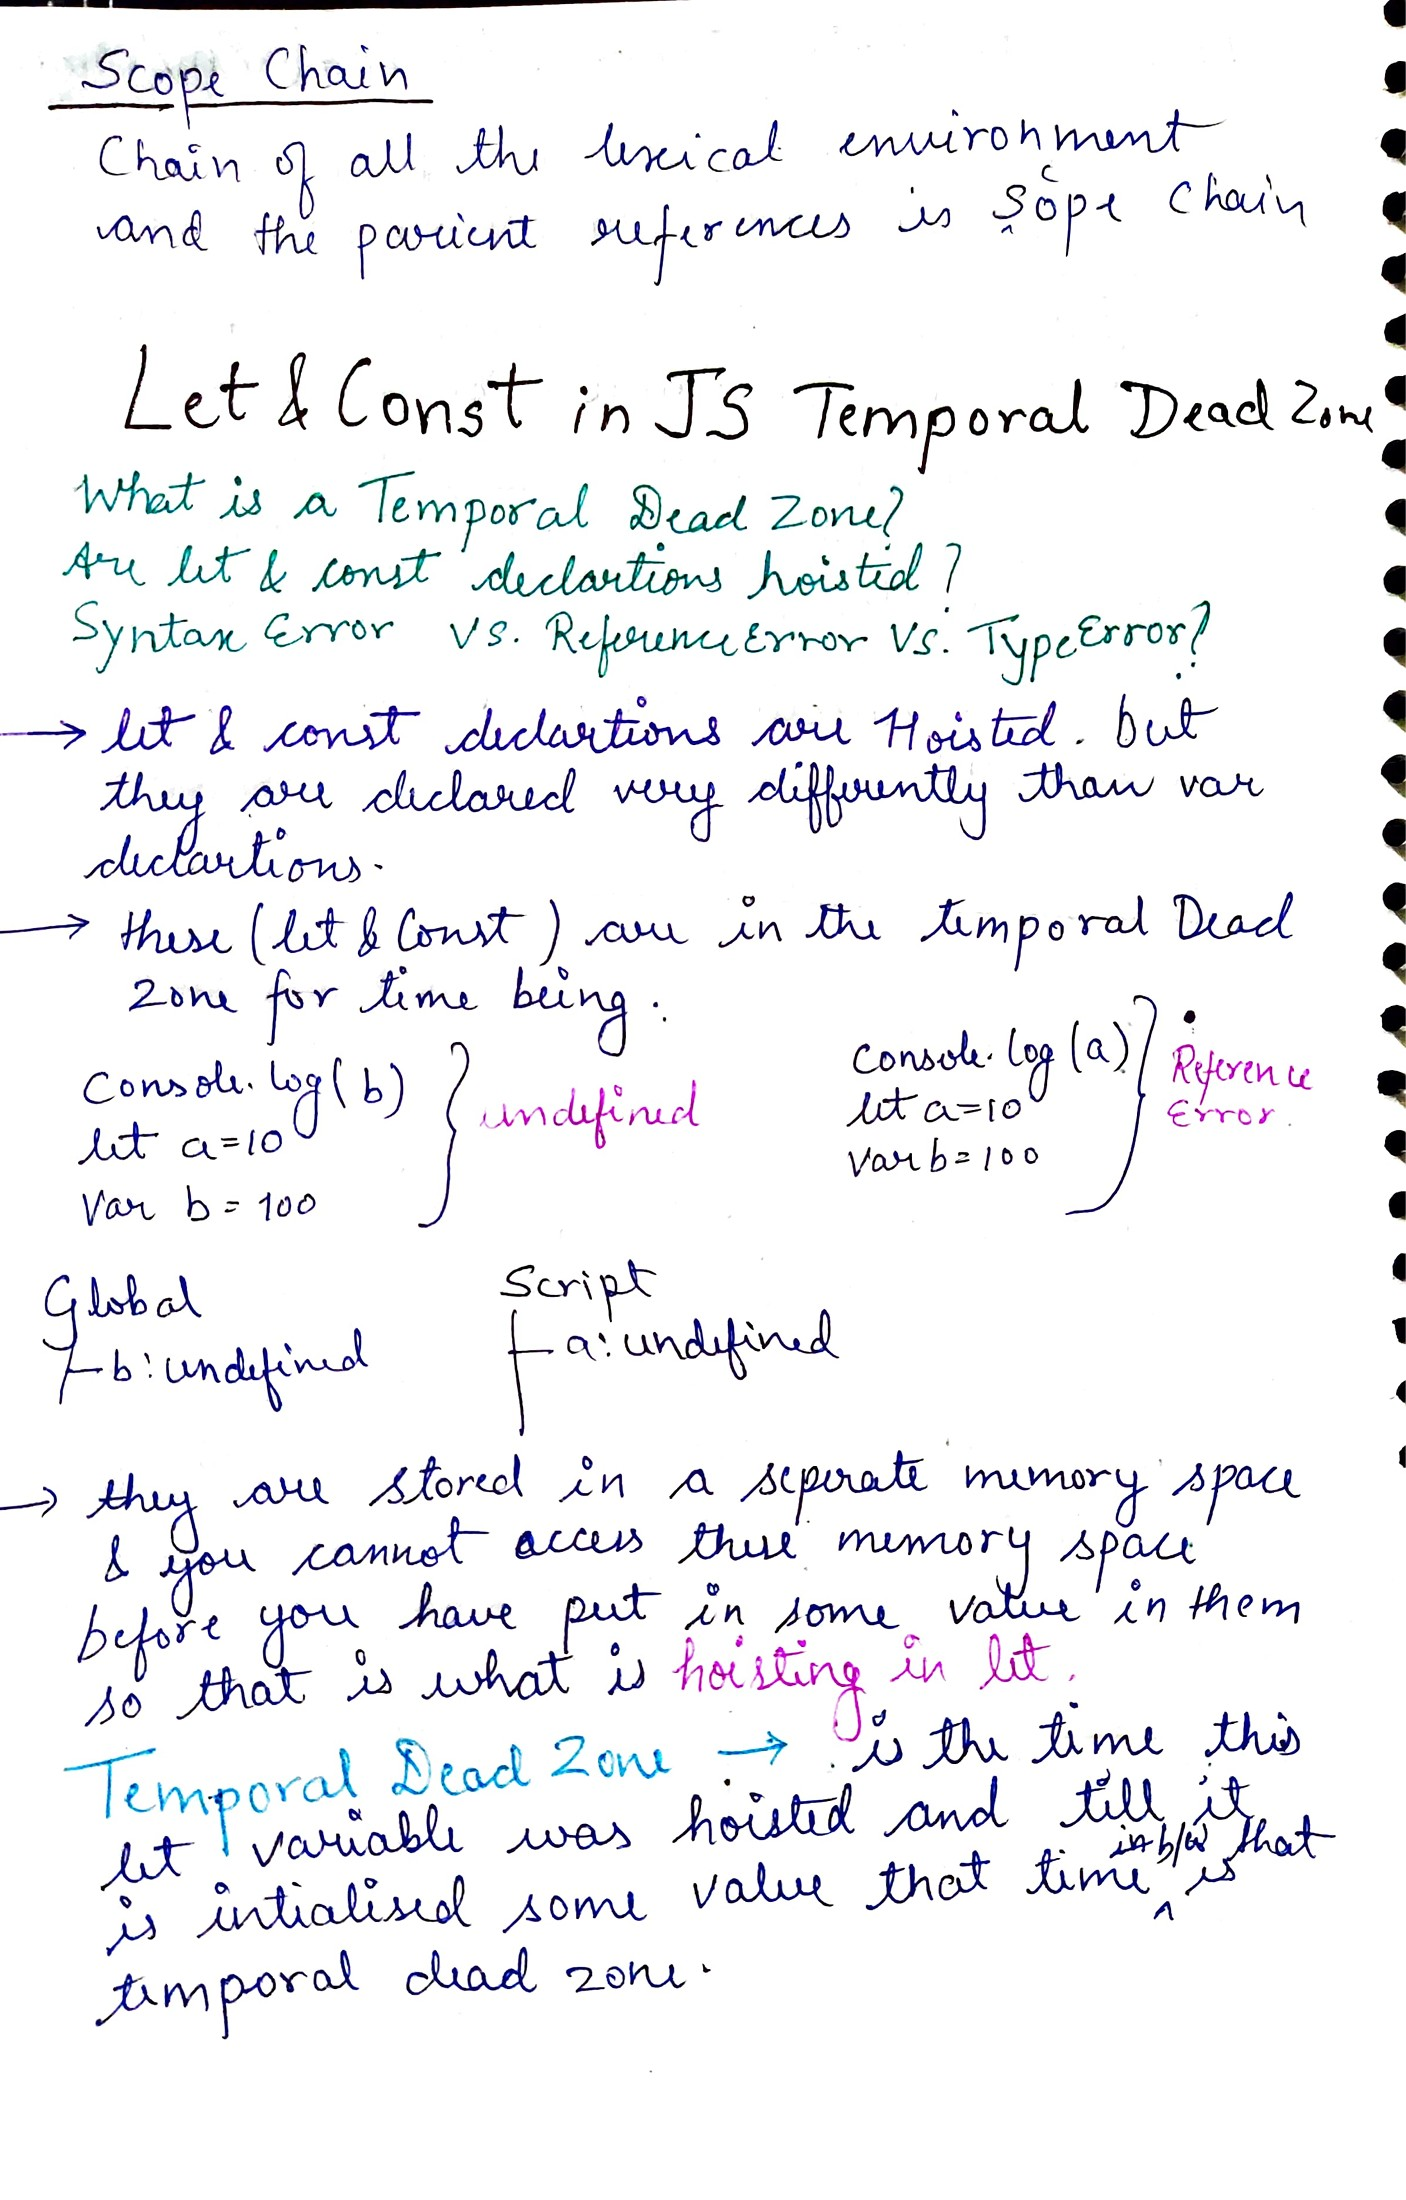 Scope Chain
Chain of all the lexical environment
and the parient references is Scope Chain
Let & Const in JS Temporal Dead Zone
What is a Temporal Dead Zone?
Are let & const declartions hoisted?
Syntax Error vs. Reference Error vs. Type Error?
→ let & const declartions are Hoisted. but
they are declared very differently than var
declartions.
→ these (let & Const) are in the temporal Dead
Zone for time being.
Console.log(b)
let a=10
Var b = 100
} undefined
Console.log(a)
let a=10
Var b=100
} Reference
Error.
Global
b: undefined
Script
a: undefined
→ they are stored in a seperate memory space
& you cannot access these memory space
before you have put in some value in them
so that is what is hoisting in let.
Temporal Dead Zone → is the time this
let variable was hoisted and till it
is intialised some value that time in b/w is that
temporal dead zone.